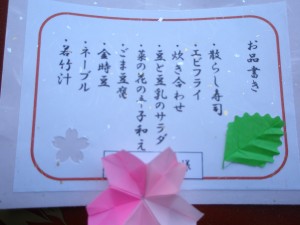 お品書き
・散らし寿司
・エビフライ
・炊き合わせ
・豆と豆乳のサラダ
・菜の花のよ子和え
・ごま豆腐
・金時豆
・ネーブル
・若竹汁
様